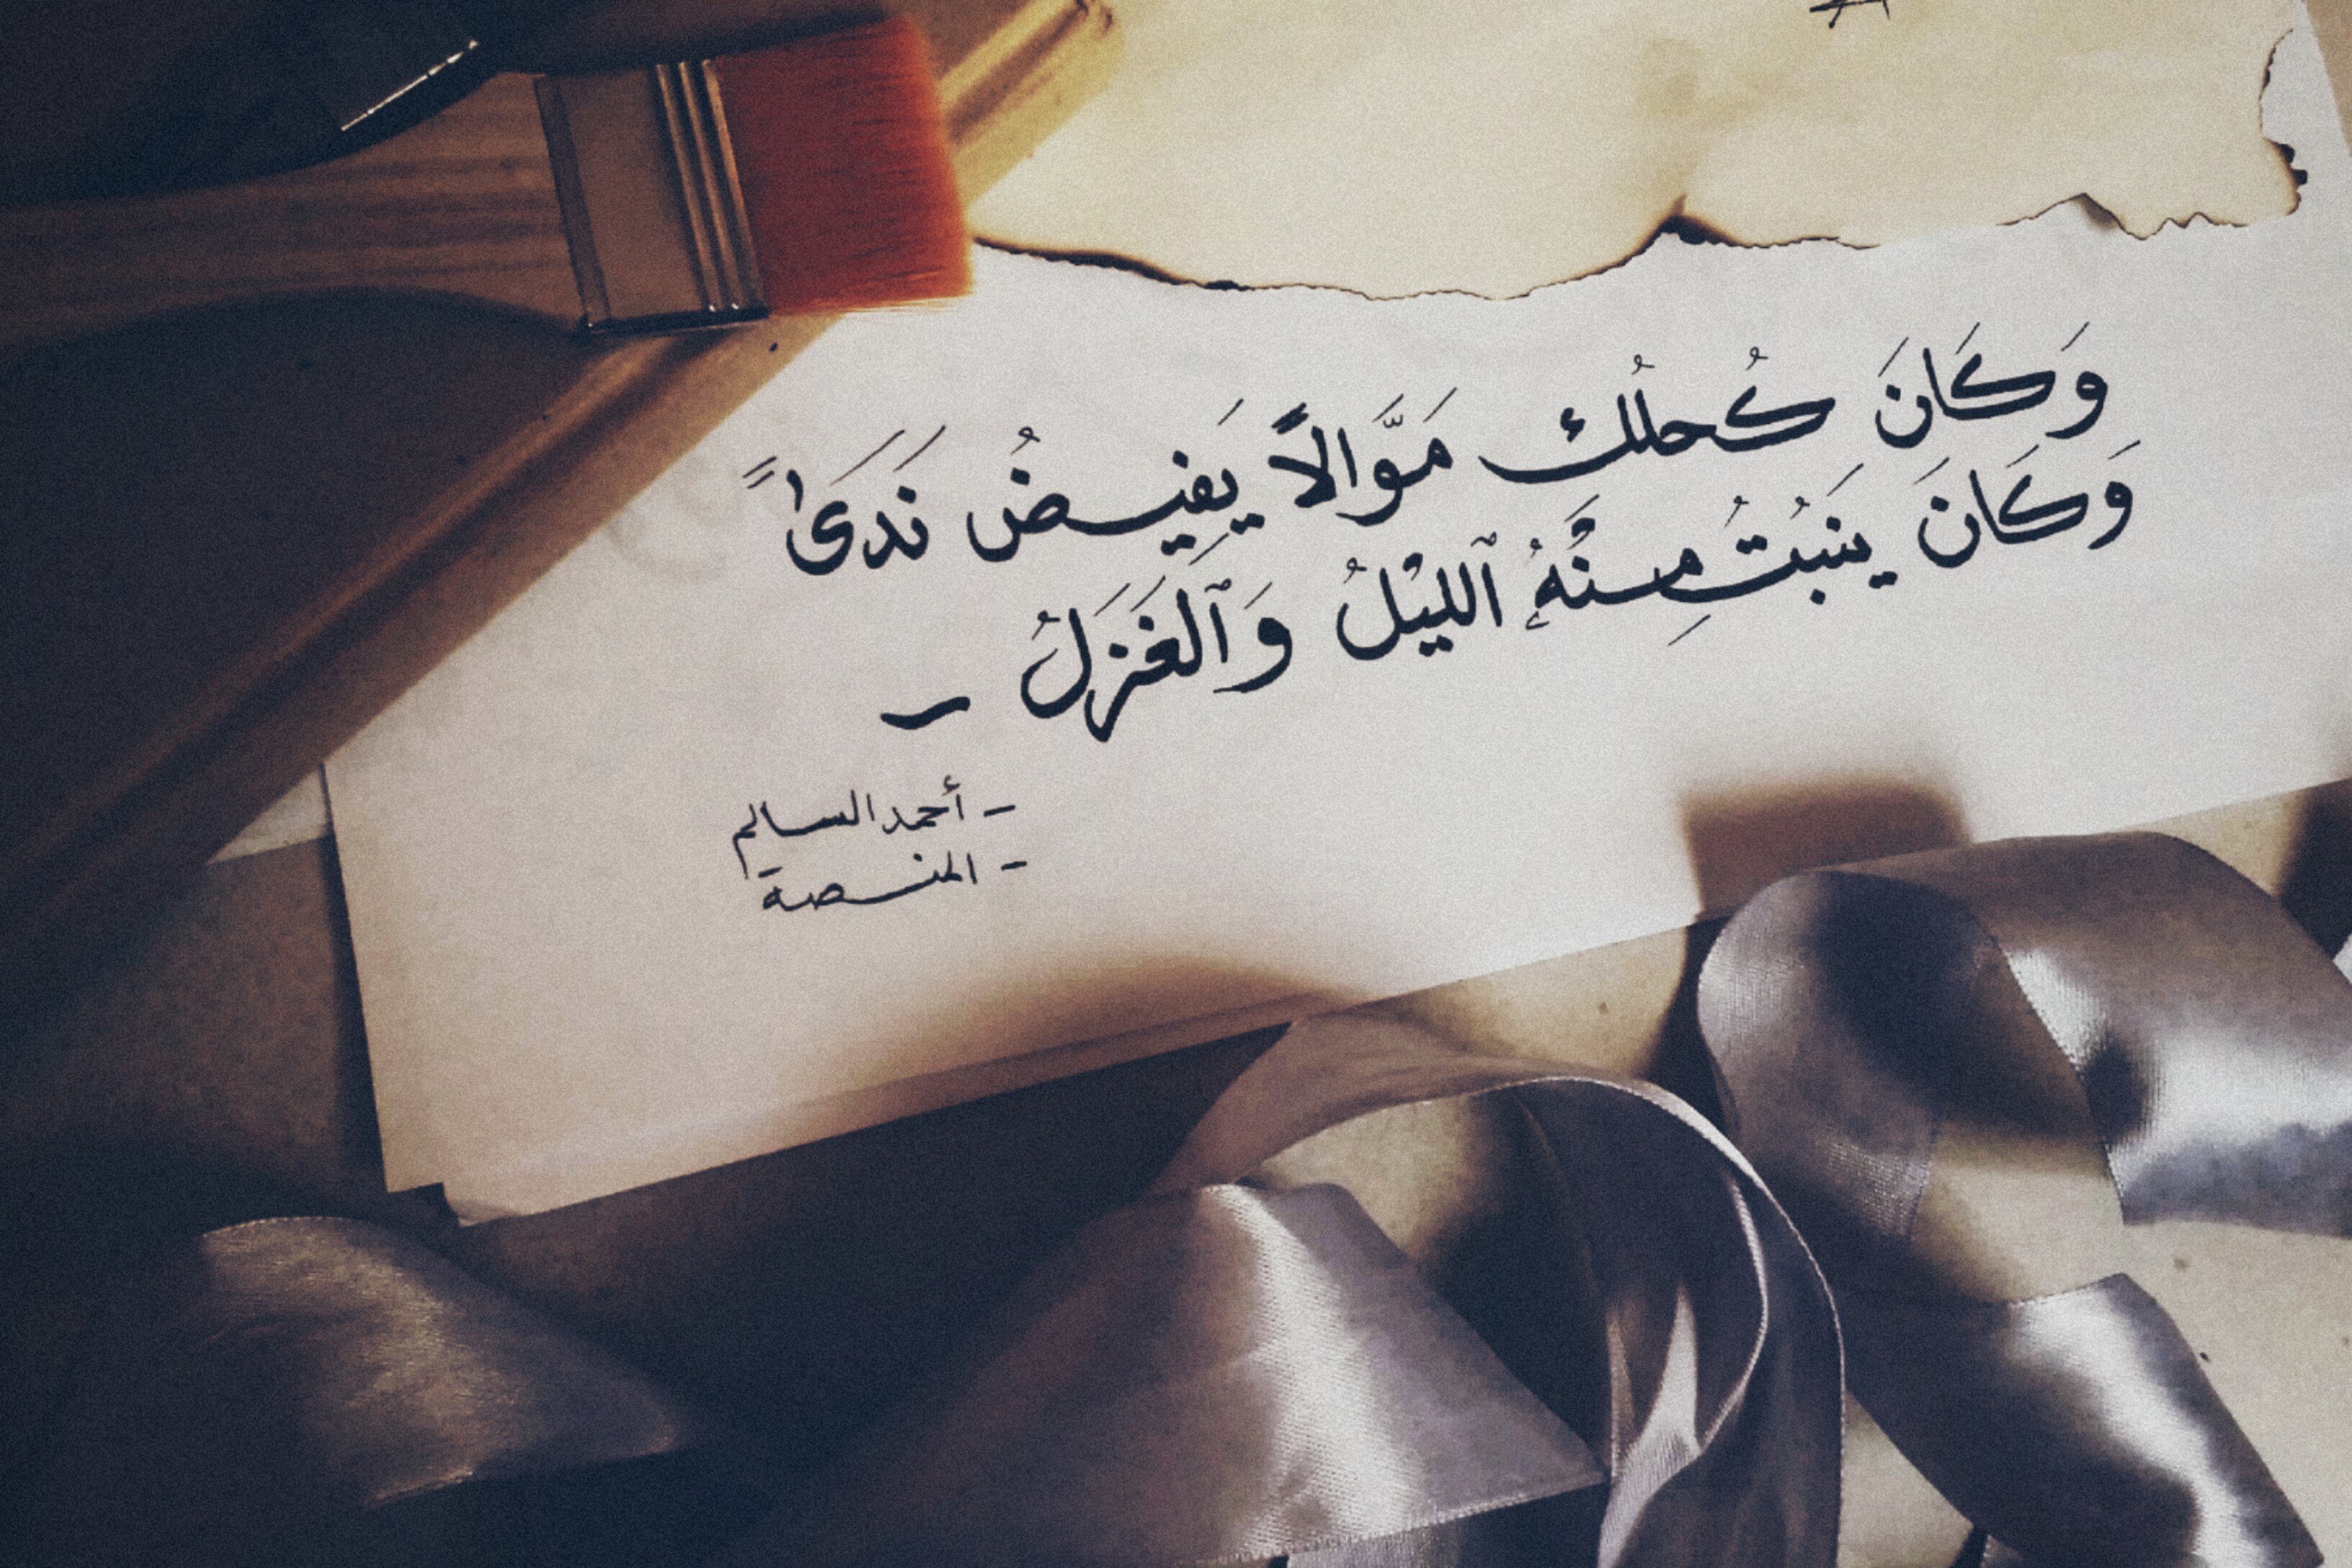 وَكَانَ كُحلُك مَوَّالاً يَفيضُ نَدَىً
وَكَانَ يَنبُتُ مِنْهُ ٱلليْلُ وَٱلغَزَلُ ~
- أحمد السالم
- المنصة